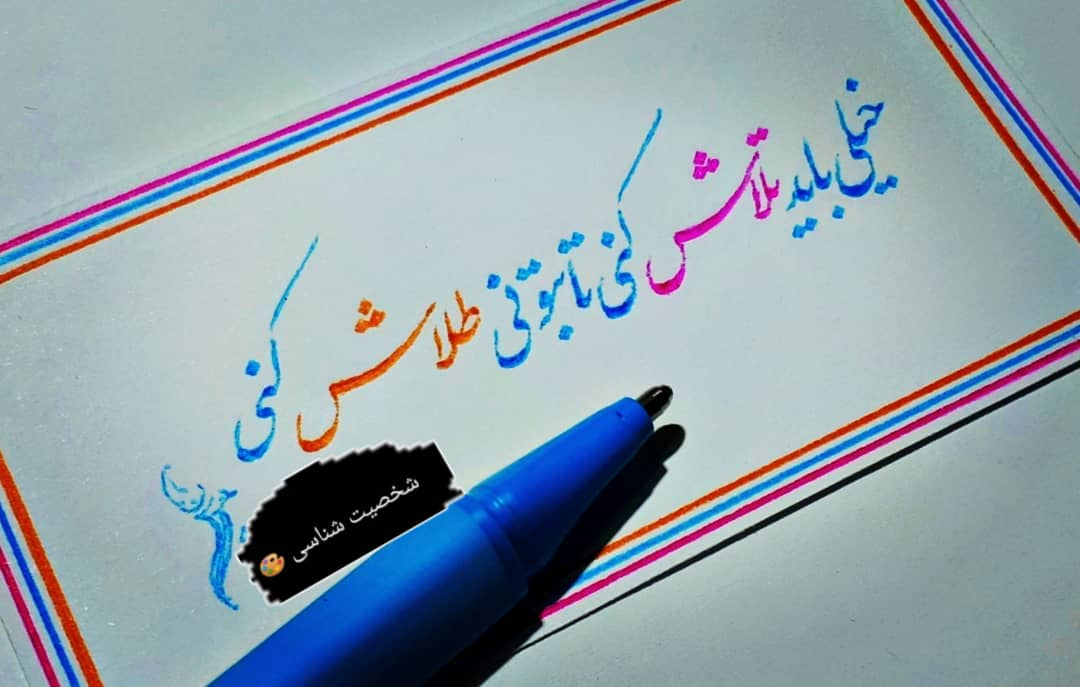 خیلی باید تلاش کنی تا بتونی طلاش کنی
شخصیت شناسی 🎨